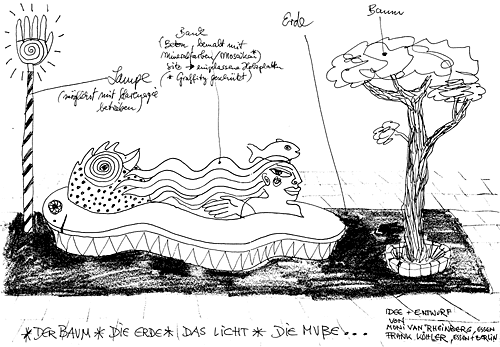 Bank
(Beton, bemalt mit
Mineralfarben/Mosaiken*
Sitz → eingelassene Holzplatten
(* Graffity geschützt)
Erde
Baum
Lampe
(möglichst mit Solarenergie
betrieben)
*DER BAUM * DIE ERDE * DAS LICHT * DIE MUßE...
IDEE + ENTWURF
VON
MONI VAN RHEINBERG, ESSEN
FRANK KÖHLER, ESSEN + BERLIN